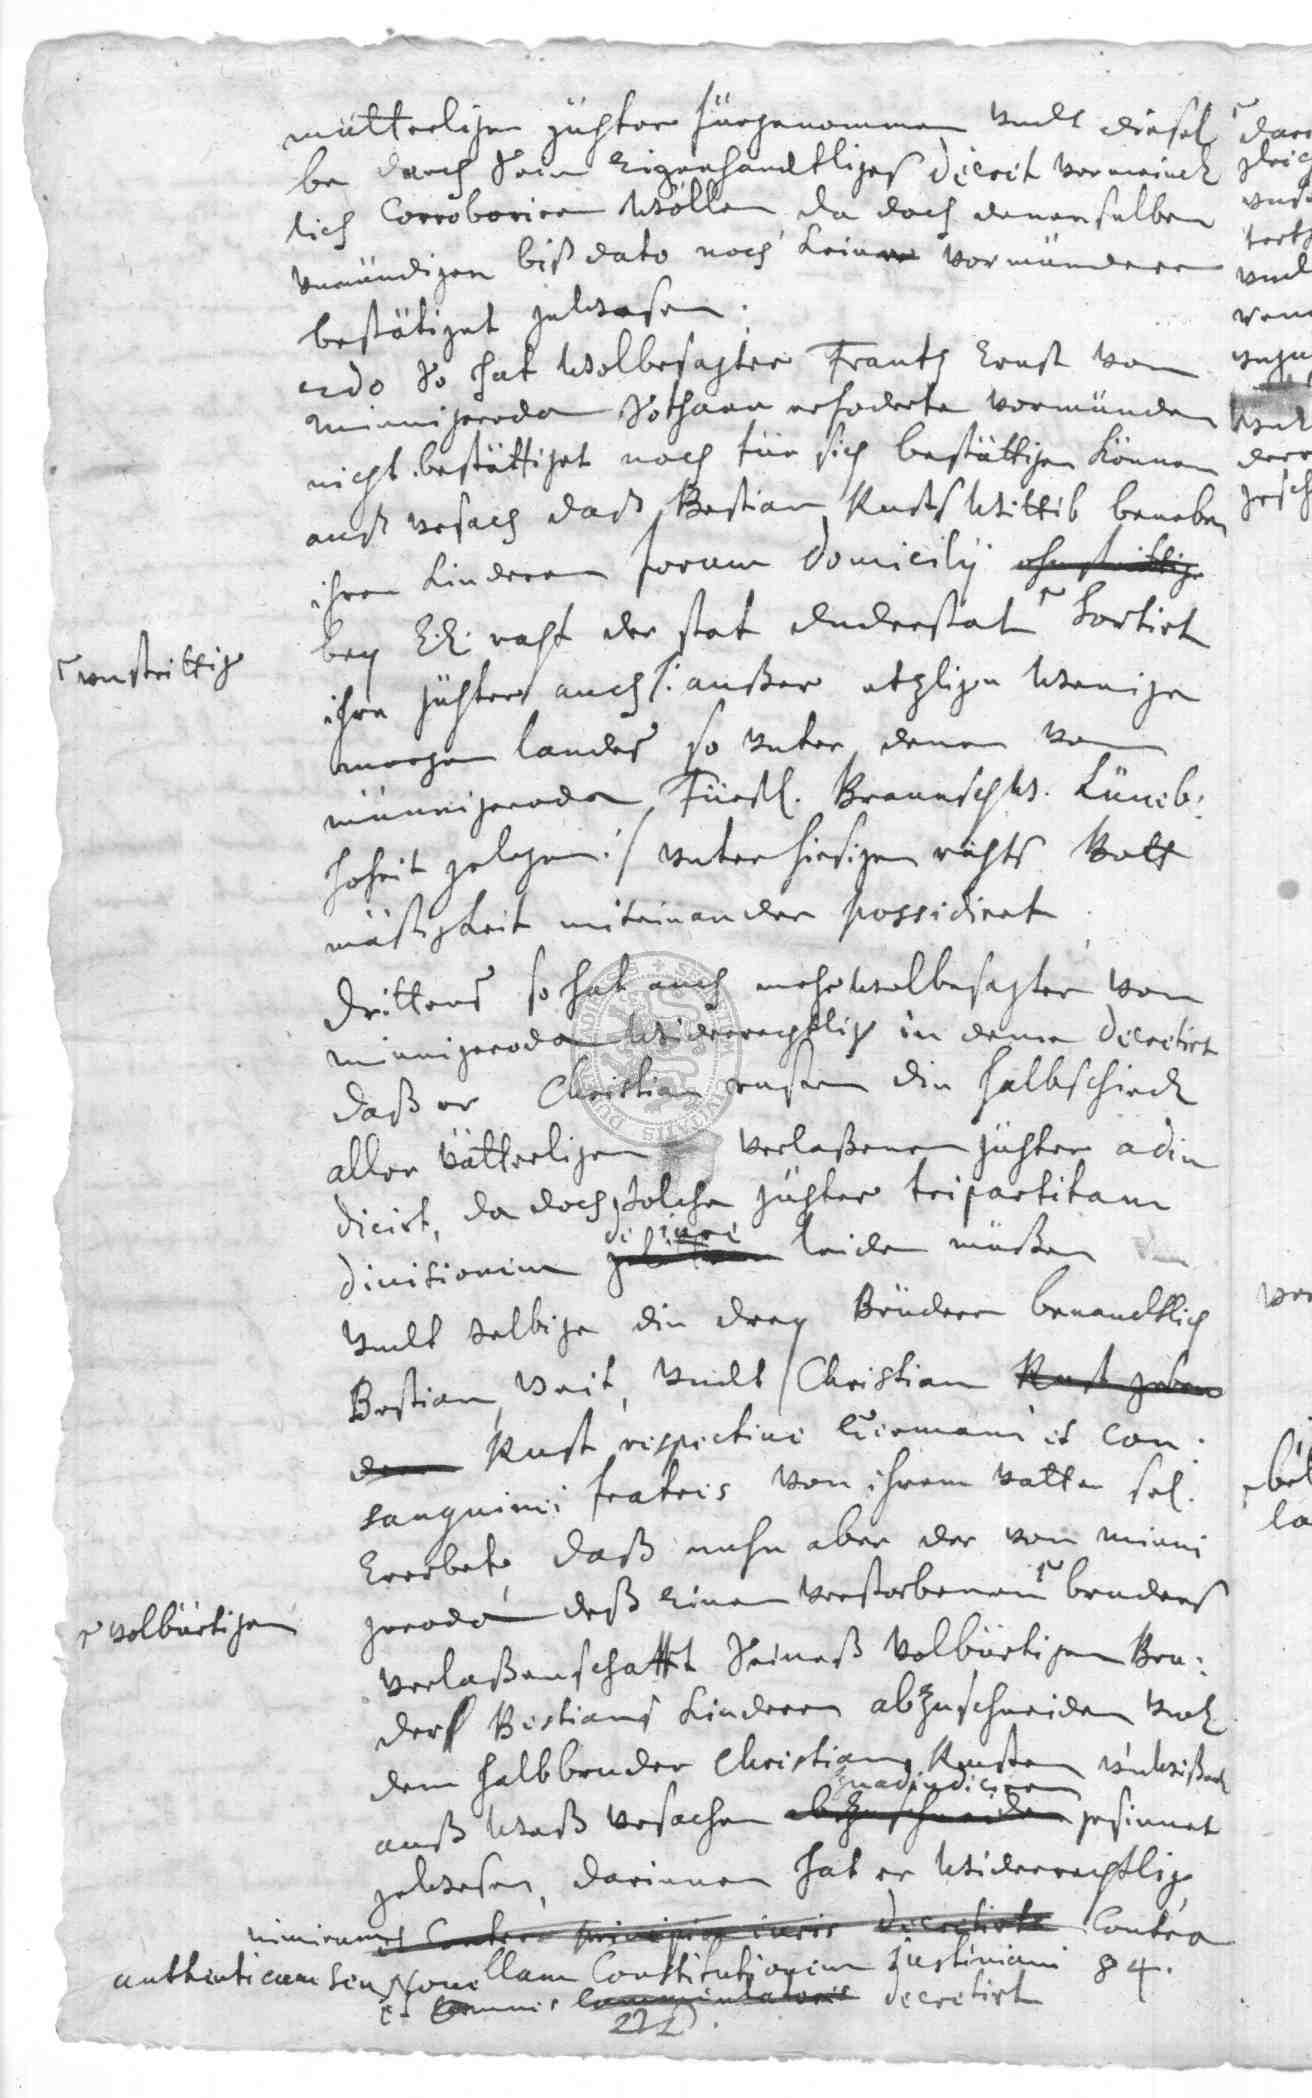 mütterlichen gühter fürgenommen undt diesel
be durch Sein Eigenhandtliches decret vermeindt
lich Corroboriren wöllen, da doch denenselben
unmündigen biß dato noch keine vormündere
bestätiget gewesen.
2do So hat wolbesagter Frantz Ernst von
Minnigeroda Sothane erfoderte vormünden
nicht bestättiget noch für sich bestättigen können
auß ursach daß Bastian Rusts Wittib beneben
ihren kinderen forum domicilij ohnstrittig
bey E.E. raht der stat duderstat sortirt
unstrittig
ihre gühter auch /: außer etzlichen wenigen
morgen landes so unter denen von
minnigeroda, Fürstl. Braunschw. Lüneb:
hoheit gelegen :/ unter hiesigen rahts Bott
mäßigkeit miteinander possidiret
Drittens so hat auch mehrwolbesagter von
minnigeroda widerrechtlich in deme decretirt
daß er Christian rusten die halbschiedt
aller vätterlichen verlaßenen gühter adiu
dicirt, da doch solche gühter tripartitam
divisionem de iure leiden müßen
undt selbige die drey Brüdere benandtlich
Bastian, Veit, undt Christian Rust gebru
der Rust respective Germani et con:
sanguinei fratres von ihrem vatter sel.
Ererbet, daß nuhn aber der von minni
geroda deß einen verstorbenen bruders
volbürtigen
verlaßenschafft Seines volbürtigen Bru:
ders Bestians kinderen abzuschneiden undt
dem halbbruder Christiann Rusten unwißend
zuadiudiciren
auß waß ursachen abzuschneiden gesinnet
gewesen, darinnen hat er widerrechtlich
nimirum et Contra principia iuris decretirt Contra
authenticam seu Novellam Constitutionem Justiniani 84.
et omnes commentatores decretirt